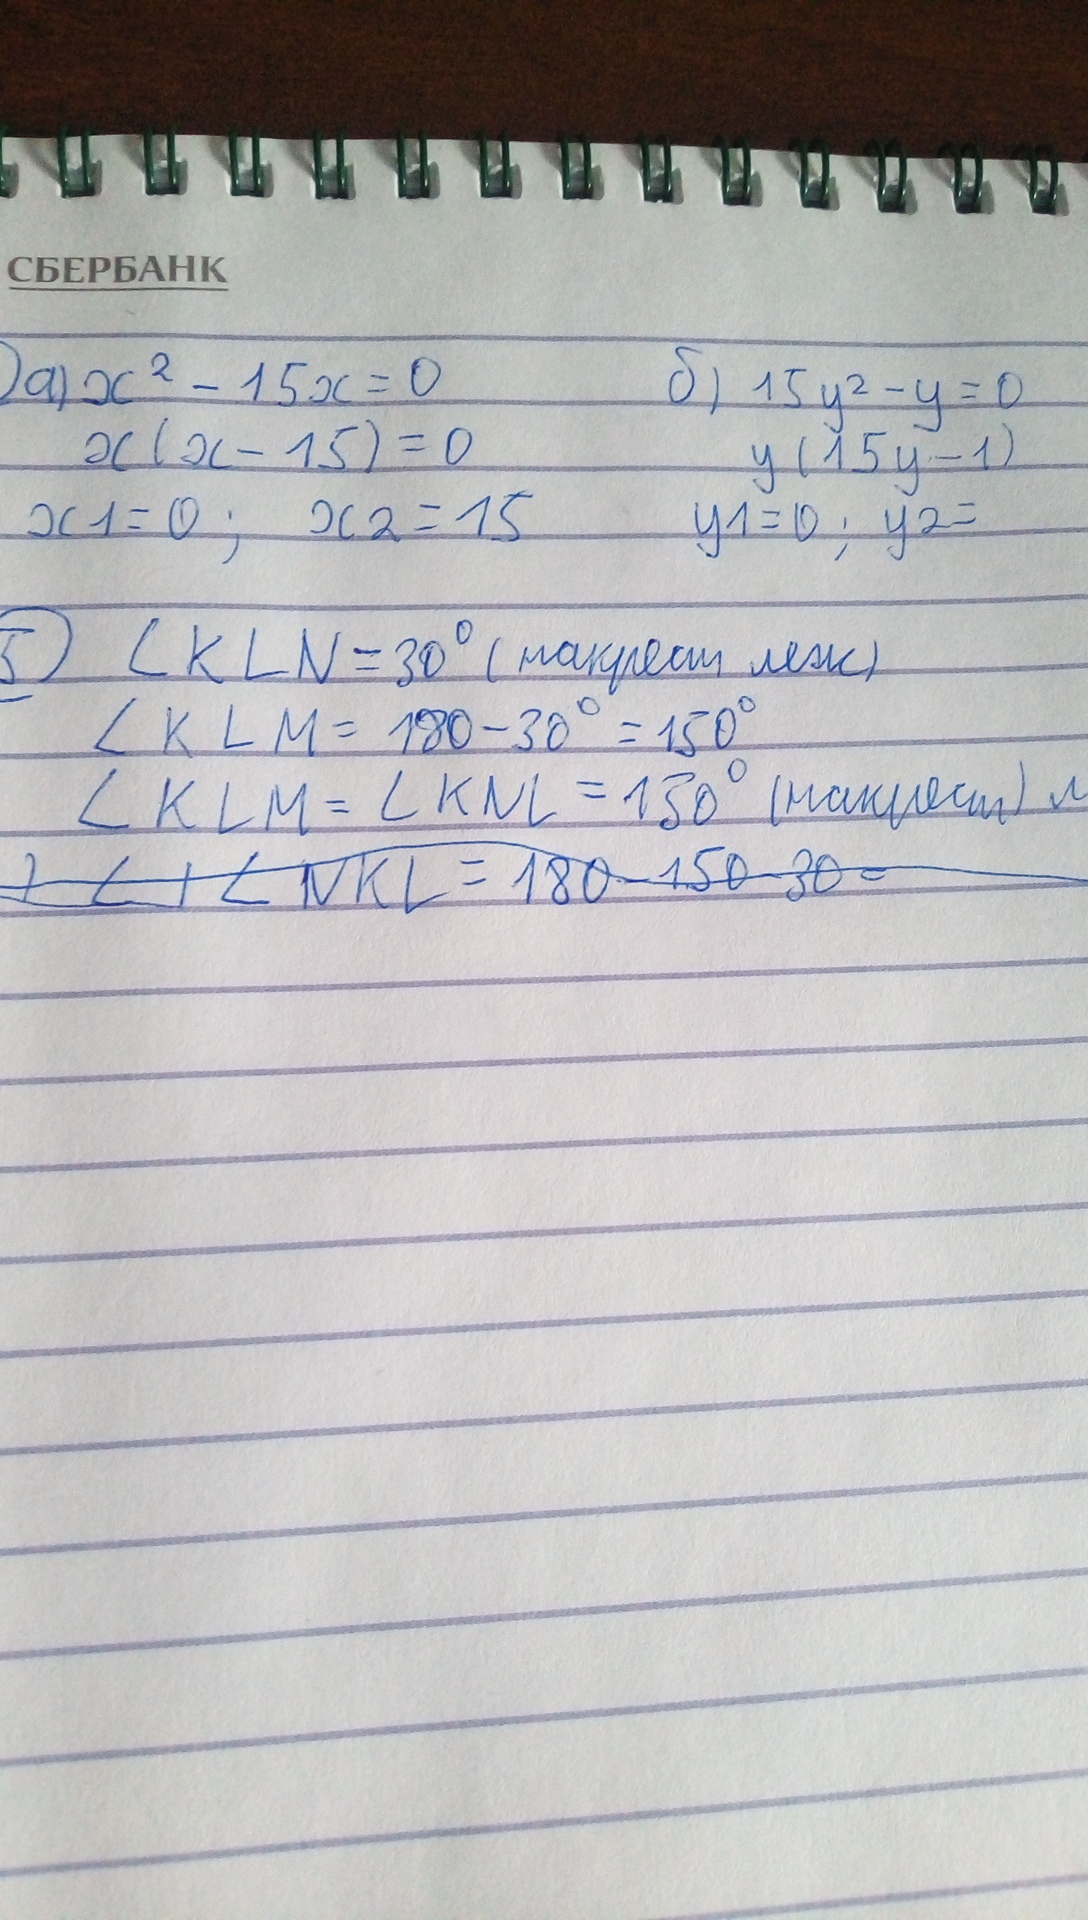 СБЕРБАНК
)а) x² - 15x = 0
x(x - 15) = 0
x1 = 0; x2 = 15
б) 15y² - y = 0
y(15y - 1)
y1 = 0; y2 =
5) ∠KLN = 30° (накрест леж)
∠KLM = 180 - 30° = 150°
∠KLM = ∠KNL = 150° (накрест) л
∠ NKL = 180 - 150 - 30 =